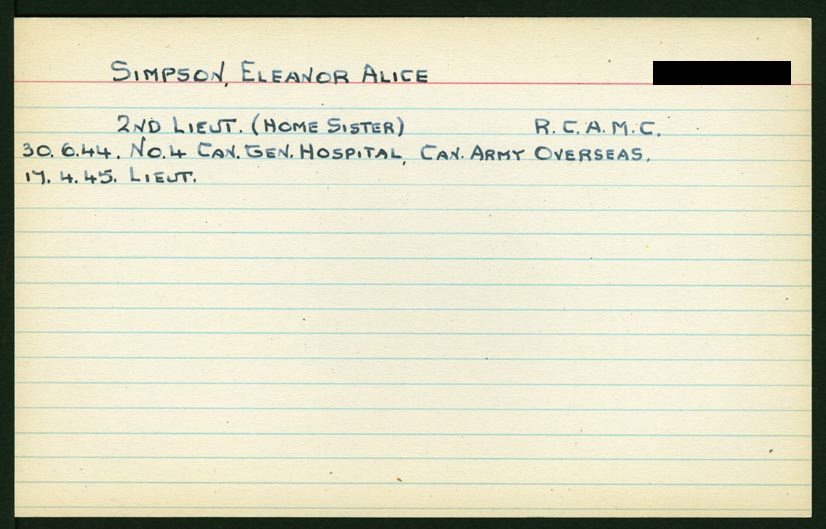 SIMPSON, ELEANOR ALICE
2ND LIEUT. (HOME SISTER) R.C.A.M.C.
30.6.44. NO.4 CAN. GEN. HOSPITAL, CAN. ARMY OVERSEAS.
17.4.45. LIEUT.